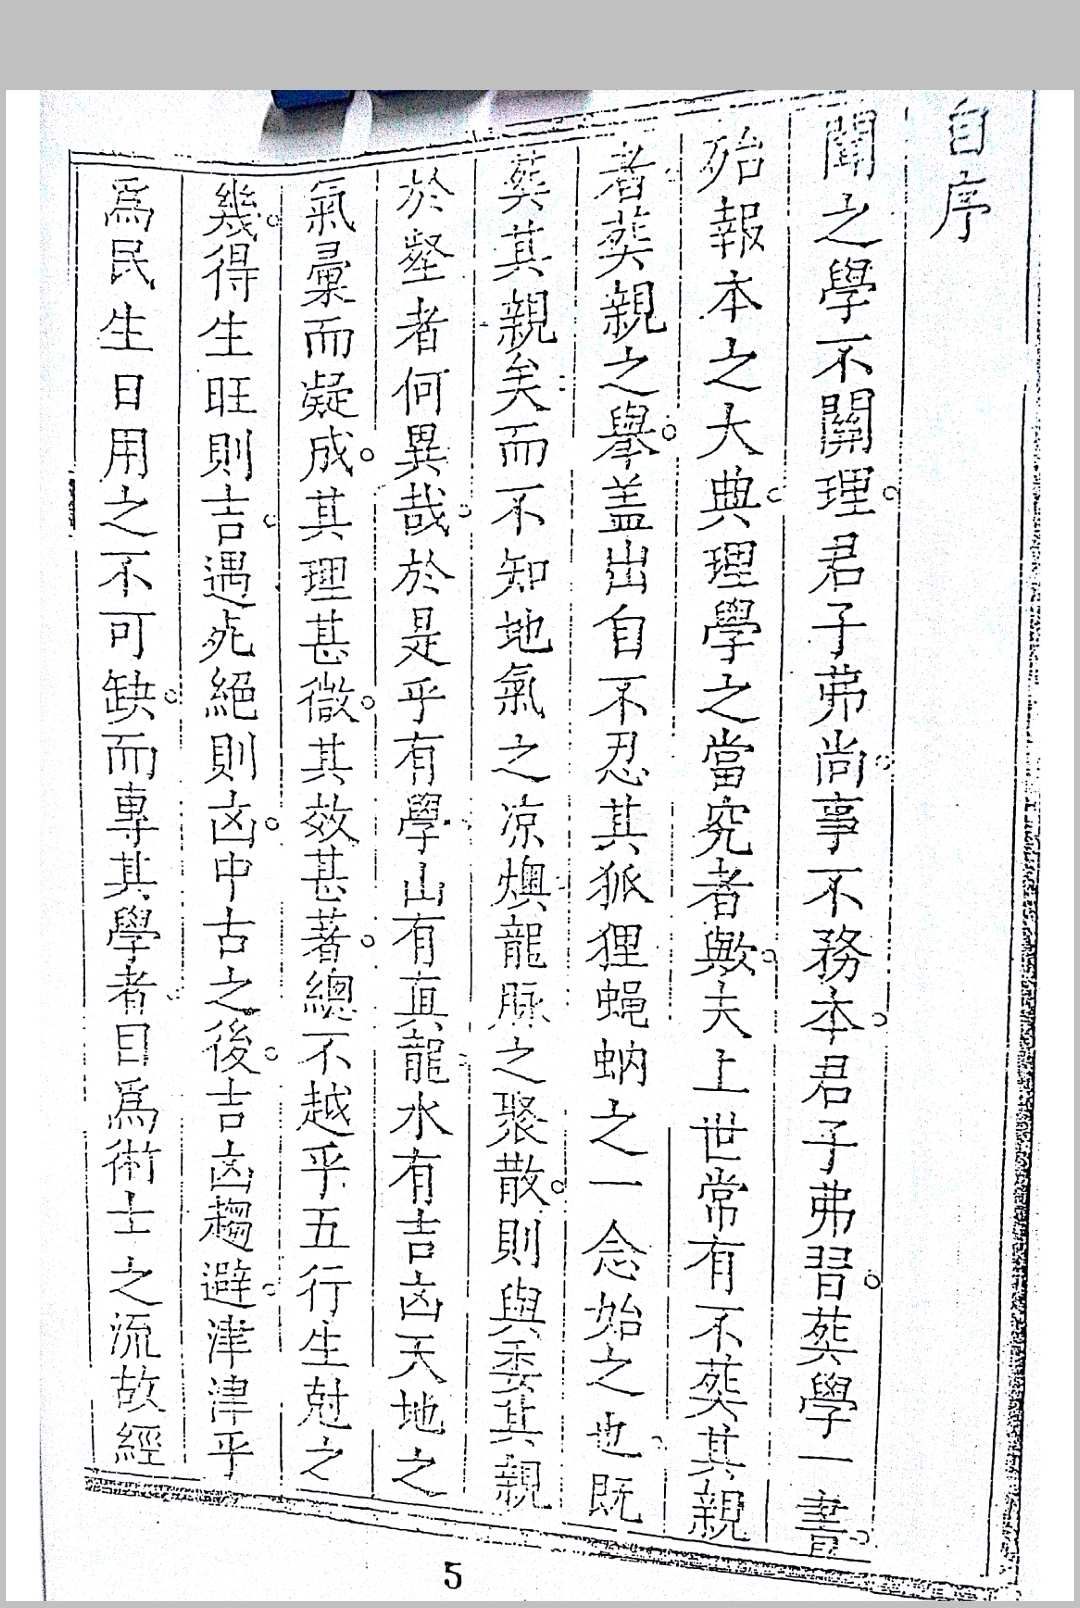 自序
聞之學不關理。君子弗尚。事不務本。君子弗習。葬學一書。
殆報本之大典。理學之當究者歟。夫上世常有不葬其親
者。葬親之舉。盖出自不忍其狐狸蝇蚋之一念始之也。既
葬其親矣。而不知地氣之凉燠。龍脉之聚散。則與委其親
於壑者何異哉。於是乎有學。山有真龍。水有吉凶。天地之
氣彙而凝成。其理甚微。其效甚著。總不越乎五行生尅之
幾。得生旺則吉。遇死絕則凶。中古之後。吉凶趨避。津津乎
爲民生日用之不可缺。而專其學者。目爲術士之流。故經
5